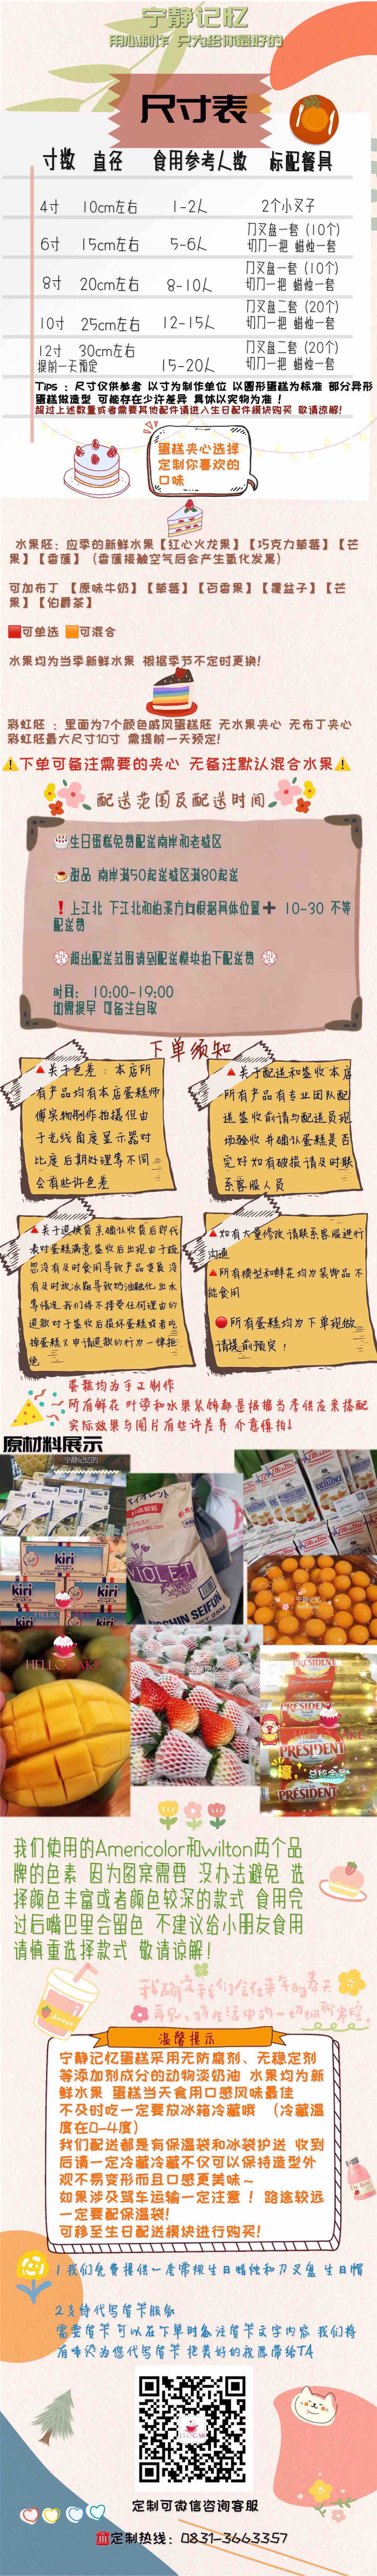 宁静记忆
用心制作 只为给你最好的
尺寸表
寸数 直径 食用参考人数 标配餐具
4寸 10cm左右 1-2人 2个小叉子
6寸 15cm左右 5-6人 刀叉盘一套（10个）
切刀一把 蜡烛一套
8寸 20cm左右 8-10人 刀叉盘一套（10个）
切刀一把 蜡烛一套
10寸 25cm左右 12-15人 刀叉盘二套（20个）
切刀一把 蜡烛一套
12寸 30cm左右
提前一天预定 15-20人 刀叉盘二套（20个）
切刀一把 蜡烛一套
Tips ：尺寸仅供参考 以寸为制作单位 以圆形蛋糕为标准 部分异形
蛋糕做造型 可能存在少许差异 具体以实物为准！
超过上述数量或者需要其他配件请进入生日配件模块购买 敬请凉解！
蛋糕夹心选择
定制你喜欢的
口味
水果胚：应季的新鲜水果【红心火龙果】【巧克力草莓】【芒
果】【香蕉】（香蕉接触空气后会产生氧化发黑）
可加布丁 【原味牛奶】【草莓】【百香果】【覆盆子】【芒
果】【伯爵茶】
可单选 可混合
水果均为当季新鲜水果 根据季节不定时更换！
彩虹胚 ：里面为7个颜色戚风蛋糕胚 无水果夹心 无布丁夹心
彩虹胚最大尺寸10寸 需提前一天预定！
下单可备注需要的夹心 无备注默认混合水果
配送范围及配送时间
生日蛋糕免费配送南岸和老城区
甜品 南岸满50起送城区满80起送
上江北 下江北和柏溪方向根据具体位置➕ 10-30 不等
配送费
超出配送范围请到配送模块拍下配送费
时间： 10:00-19:00
如需提早 可备注自取
下单须知
关于色差：本店所
有产品均有本店蛋糕师
傅实物制作拍摄但由
于光线角度显示器对
比度后期处理等不同
会有些许色差
关于配送和签收本店
所有产品有专业团队配
送签收前请与配送员现
场验收并确认蛋糕是否
完好如有破损请及时联
系客服人员
关于退换货亲确认收货后即代
表对蛋糕满意签收后出现由于疏
忽没有及时食用导致产品变质没
有及时放冰箱导致奶油融化出水
等情况我们将不接受任何理由的
退款对于签收后损坏蛋糕或者吃
掉蛋糕又申请退款的行为一律拒
绝
如有大量修改请联系客服进行
沟通
所有模型和鲜花均为装饰品不
能食用
所有蛋糕均为下单现做
请提前预定！
蛋糕均为手工制作
所有鲜花 叶子和水果装饰都是根据当季供应来搭配
实际效果与图片有些许差异 介意慎拍！
原材料展示
宁静记忆的
Millac
kiri
HELLO CAKE
VIOLET
NISSHIN SEIFUN
宁静记忆
HELLO CAKE
PRESIDENT
壕，
总统金条
我们使用的Americolor和wilton两个品
牌的色素 因为图案需要 没办法避免 选
择颜色丰富或者颜色较深的款式 食用完
过后嘴巴里会留色 不建议给小朋友食用
请慎重选择款式 敬请谅解！
Sweet
温馨提示
宁静记忆蛋糕采用无防腐剂、无稳定剂
等添加剂成分的动物淡奶油 水果均为新
鲜水果 蛋糕当天食用口感风味最佳
不及时吃一定要放冰箱冷藏哦 （冷藏温
度在0-4度）
我们配送都是有保温袋和冰袋护送 收到
后请一定冷藏冷藏不仅可以保持造型外
观不易变形而且口感更美味~
如果涉及驾车运输一定注意！路途较远
一定要配保温袋！
可移至生日配送模块进行购买！
1 我们免费提供一套常规生日蜡烛和刀叉盘 生日帽
2 支持代写贺卡服务
需要贺卡 可以在下单时备注贺卡文字内容 我们将
有专设为您代写贺卡 把美好的祝愿带给TA
定制可微信咨询客服
定制热线：0831-3663357